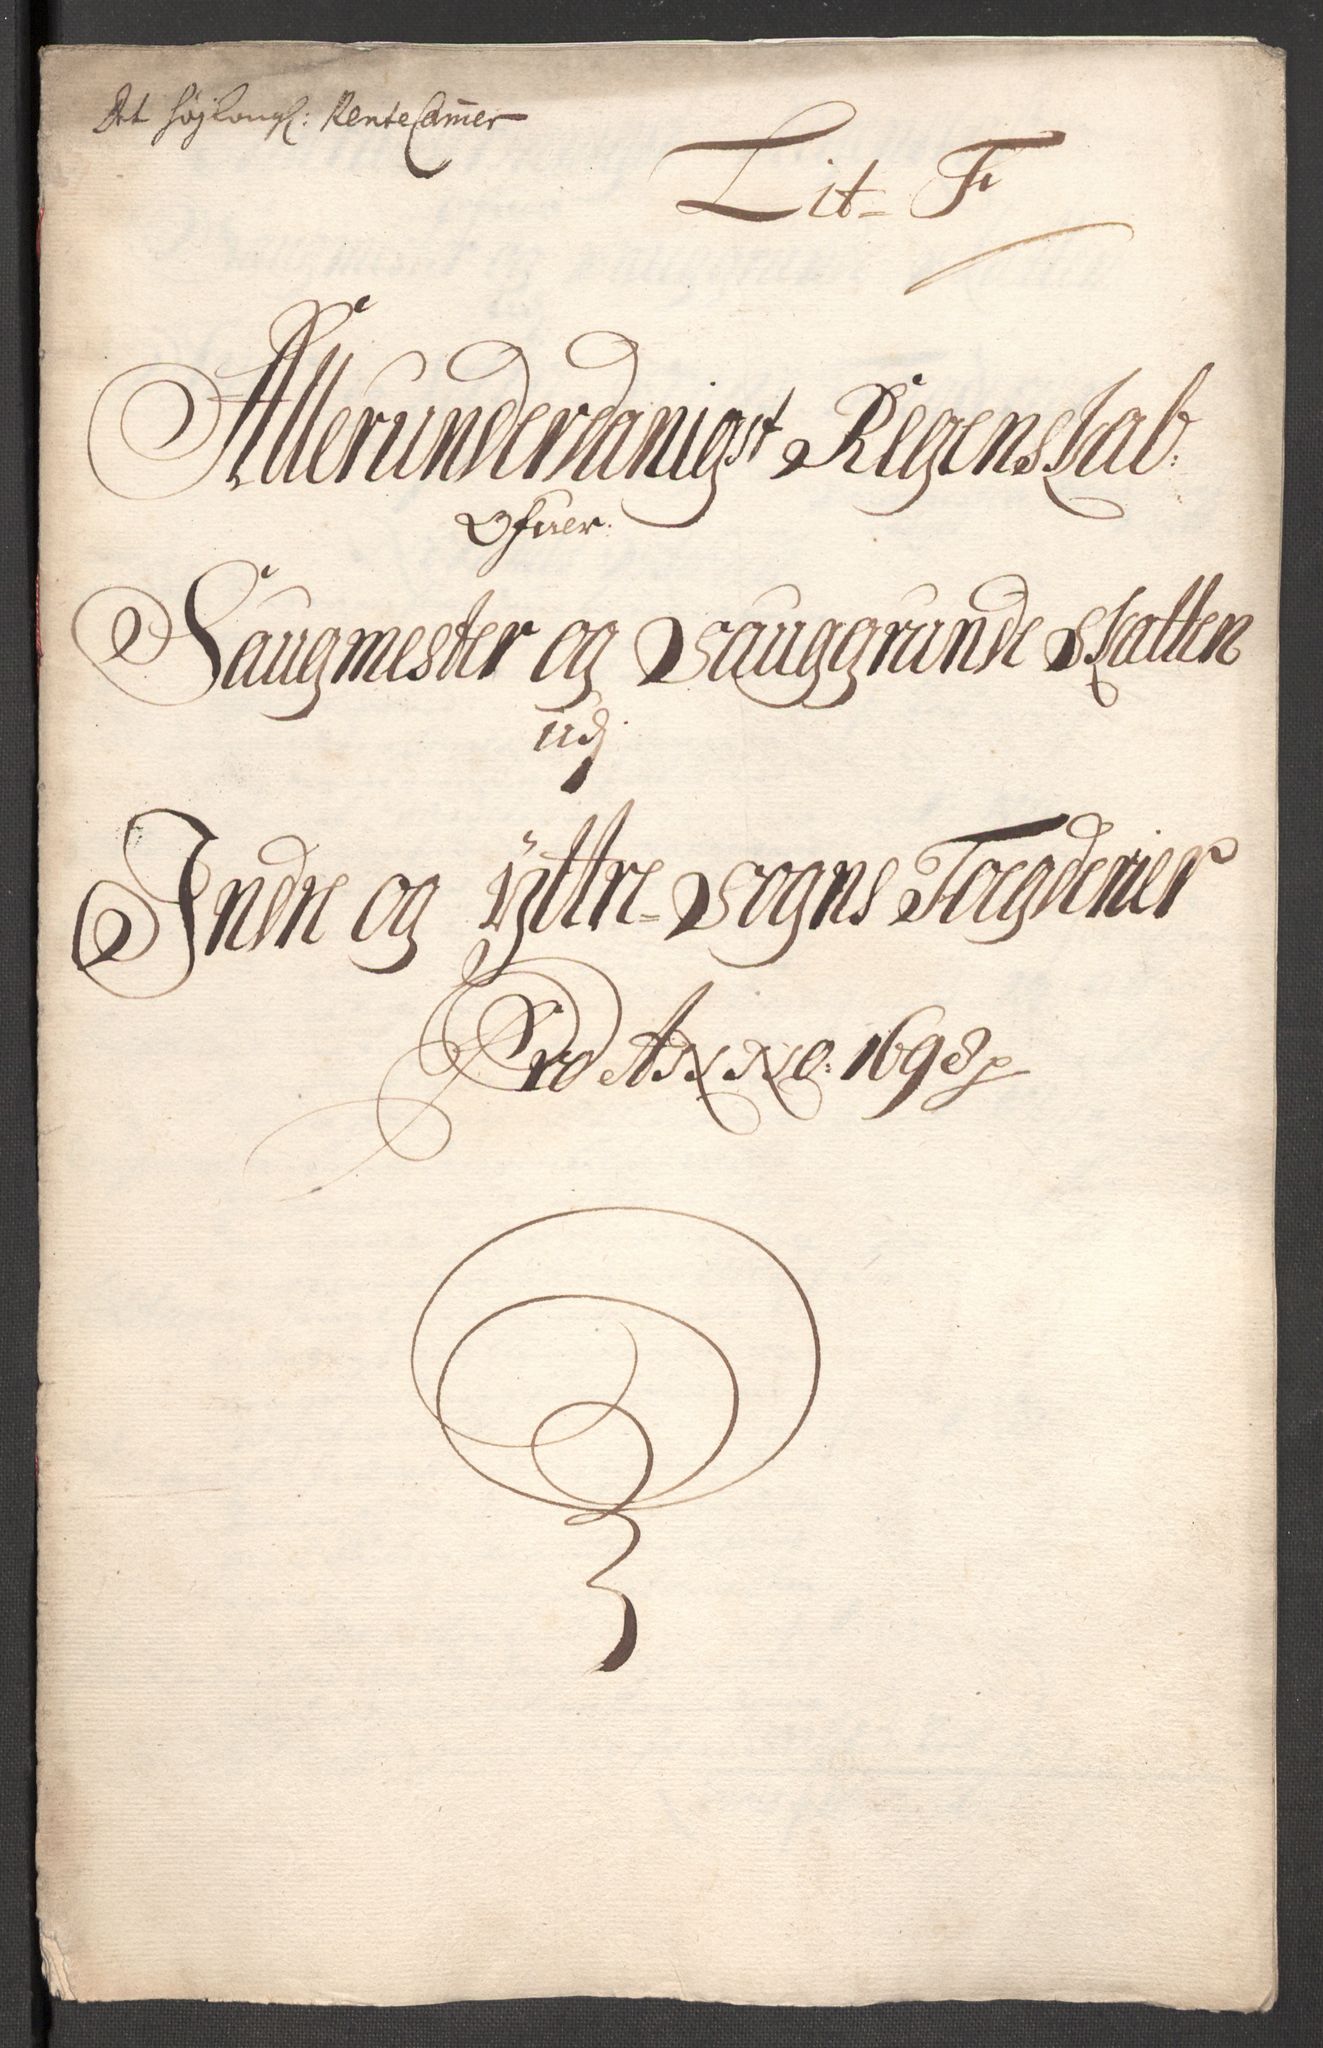 Det höjlougl: Rente Cam̄er
Lit= F
Allerunderdanigst Regenskab:
Ofuer:
Saugmester og Sauggrunde Skatten
udj
Indre og ÿttre=Sogns Foegderier
Pro ANNO: 1698